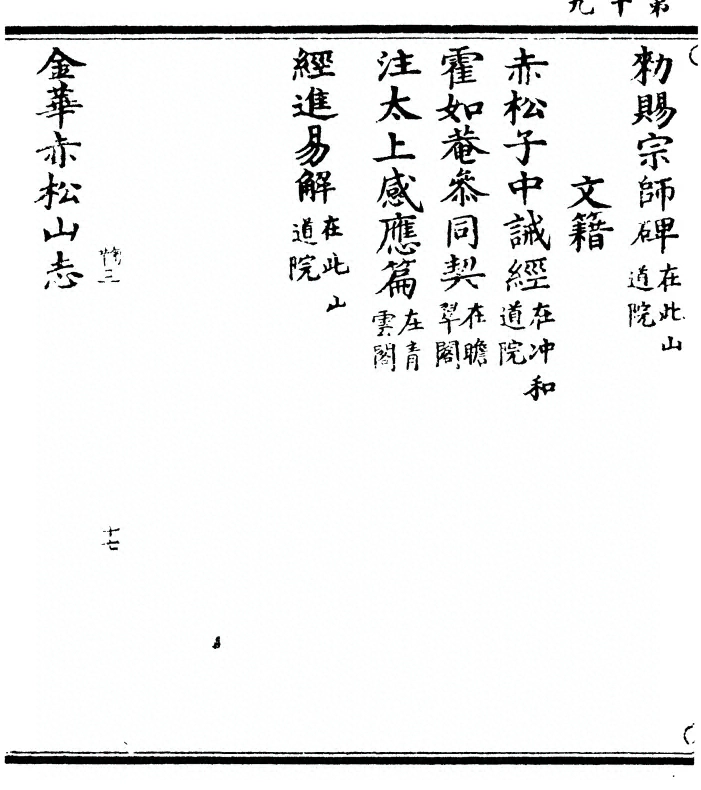 第十九
勑賜宗師碑在此山道院
文籍
赤松子中誡經在冲和道院
霍如菴叅同契在瞻翠閣
注太上感應篇在青雲閣
經進易解在此山道院
三
十七
金華赤松山志